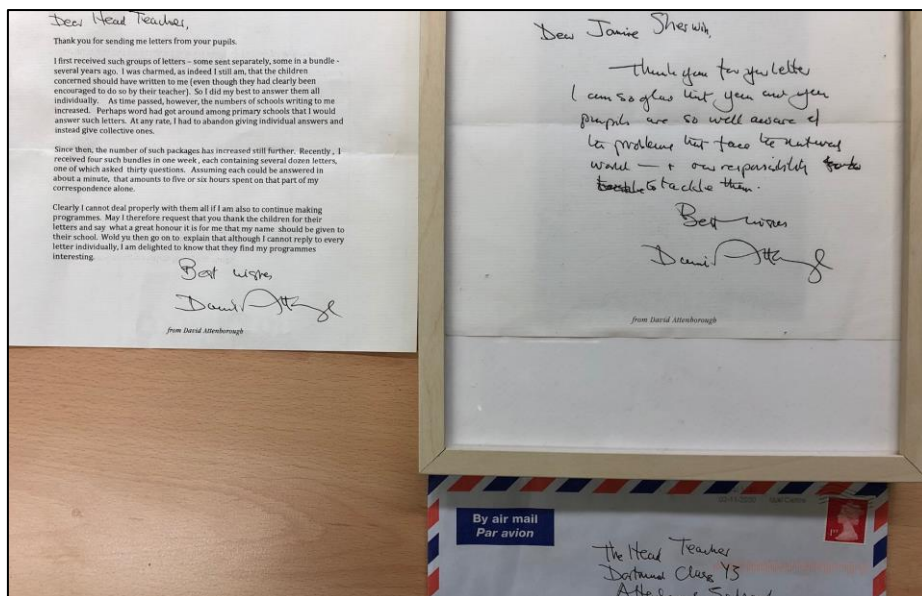 Dear Head Teacher,
Thank you for sending me letters from your pupils.
I first received such groups of letters – some sent separately, some in a bundle -
several years ago. I was charmed, as indeed I still am, that the children
concerned should have written to me (even though they had clearly been
encouraged to do so by their teacher). So I did my best to answer them all
individually. As time passed, however, the numbers of schools writing to me
increased. Perhaps word had got around among primary schools that I would
answer such letters. At any rate, I had to abandon giving individual answers and
instead give collective ones.
Since then, the number of such packages has increased still further. Recently, I
received four such bundles in one week, each containing several dozen letters,
one of which asked thirty questions. Assuming each could be answered in
about a minute, that amounts to five or six hours spent on that part of my
correspondence alone.
Clearly I cannot deal properly with them all if I am also to continue making
programmes. May I therefore request that you thank the children for their
letters and say what a great honour it is for me that my name should be given to
their school. Wold yu then go on to explain that although I cannot reply to every
letter individually, I am delighted to know that they find my programmes
interesting.
Best wishes
David Attenborough
from David Attenborough
Dear Janine Sherwin,
Thank you for your letter
I am so glad that you and your
pupils are so well aware of
the problems that face the natural
world – + our responsibility
to tackle them.
Best wishes
David Attenborough
from David Attenborough
By air mail
Par avion
1ST
The Head Teacher
Dortmund Class Y3